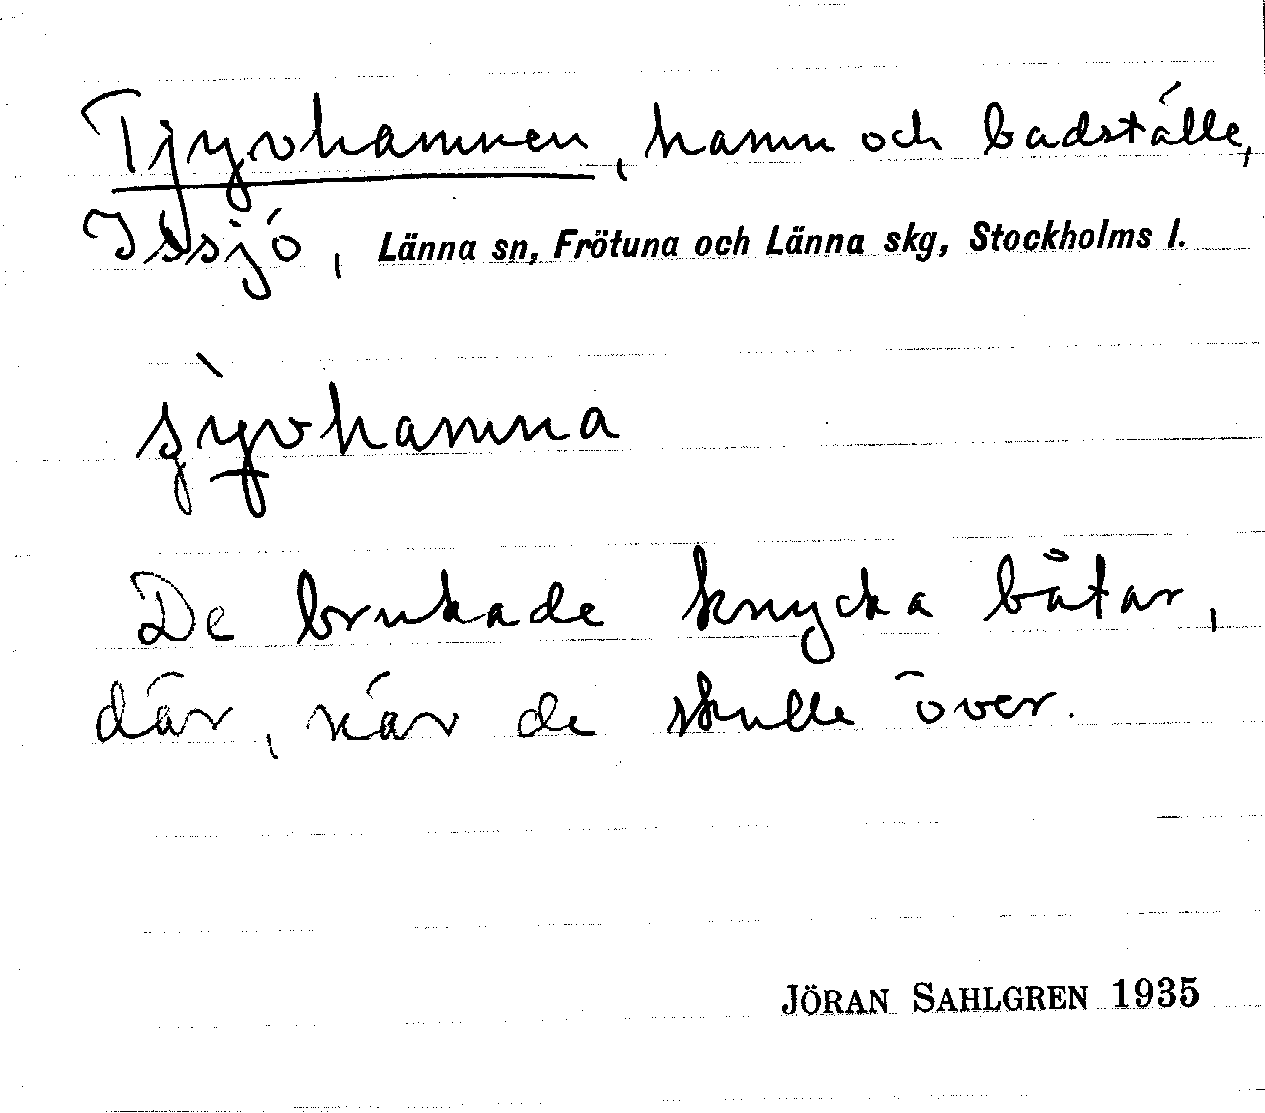 Tjyvhamnen, hamn och badställe,
Issjö, Länna sn, Frötuna och Länna skg, Stockholms l.
ʂỳvhamna
De brukade knycka båtar,
där, när de skulle över.
JÖRAN SAHLGREN 1935